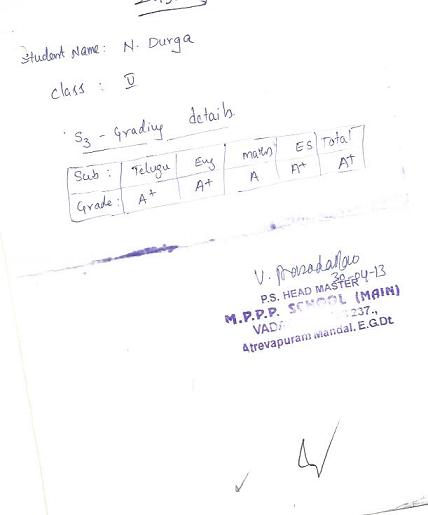 Student Name: N. Durga
class : V
S3 - Grading details.
Sub : Telugu Eng maths ES Total
Grade: A+ A+ A A+ A+
V. Prasada Rao
30-04-13
P.S. HEAD MASTER
M.P.P.P. SCHOOL (MAIN)
237.,
Atreyapuram Mandal, E.G.Dt